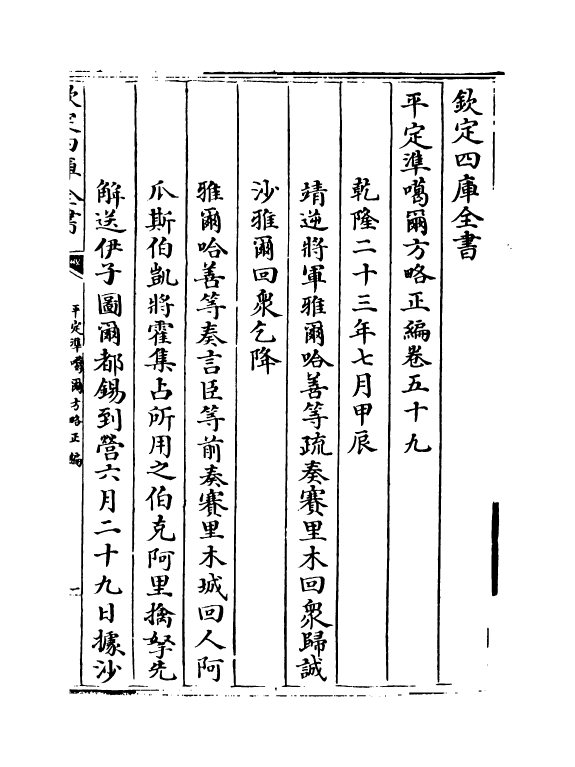 欽定四庫全書
平定準噶爾方略正編卷五十九
乾隆二十三年七月甲辰
靖逆將軍雅爾哈善等疏奏賽里木回衆歸誠
沙雅爾回衆乞降
雅爾哈善等奏言臣等前奏賽里木城回人阿
瓜斯伯凱將霍集占所用之伯克阿里擒拏先
解送伊子圖爾都錫到營六月二十九日據沙
欽定四庫全書
平定準噶爾方略正編
一